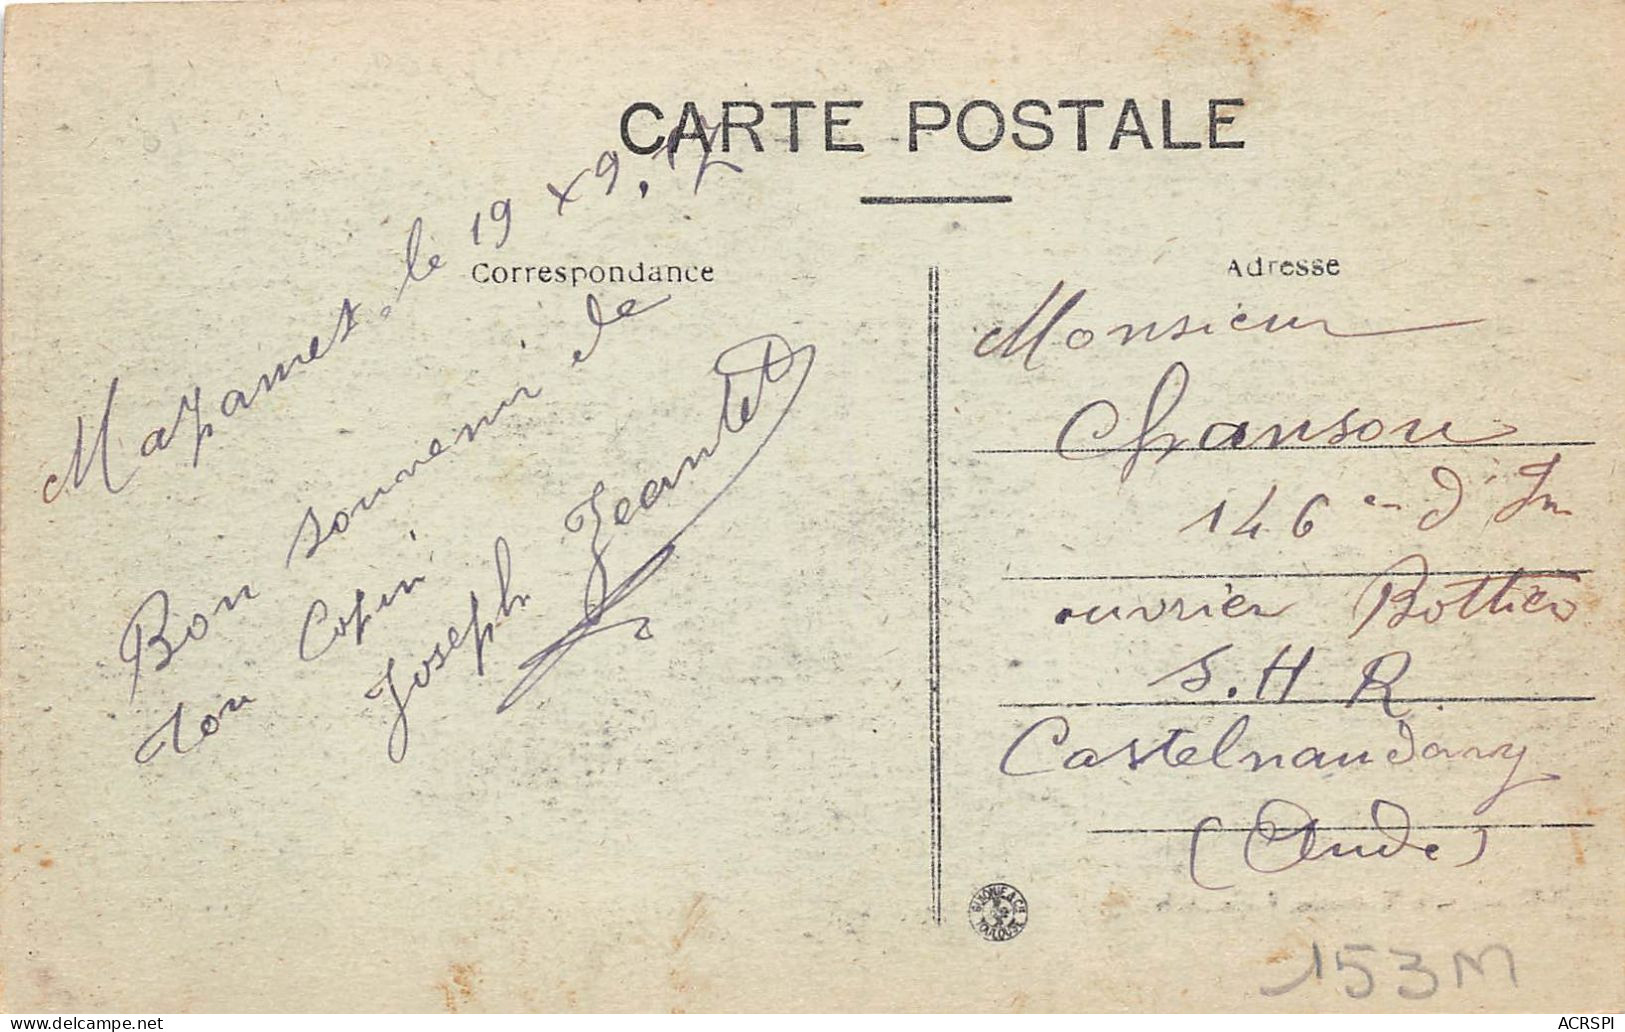 CARTE POSTALE
Correspondance
Mazamet. le 19 x 9, 17
Bon souvenir de
ton Copin
Joseph Jeantet
Adresse
Monsieur
Chanson
146 en d'In
ouvrier Bottier
S.H R.
Castelnaudary
(Aude)
TOULOUSE
153M
delcampe.net
ACRSPI